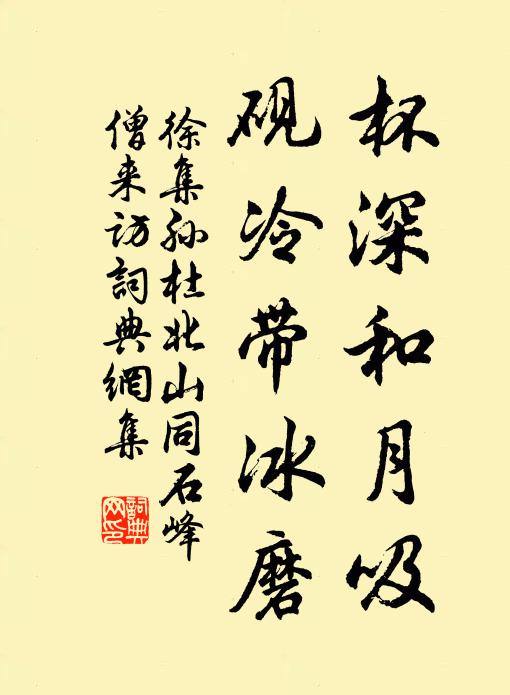 杯深和月吸
砚冷带冰磨
徐集孙杜北山同石峰
僧来访词典網集
詞典网印